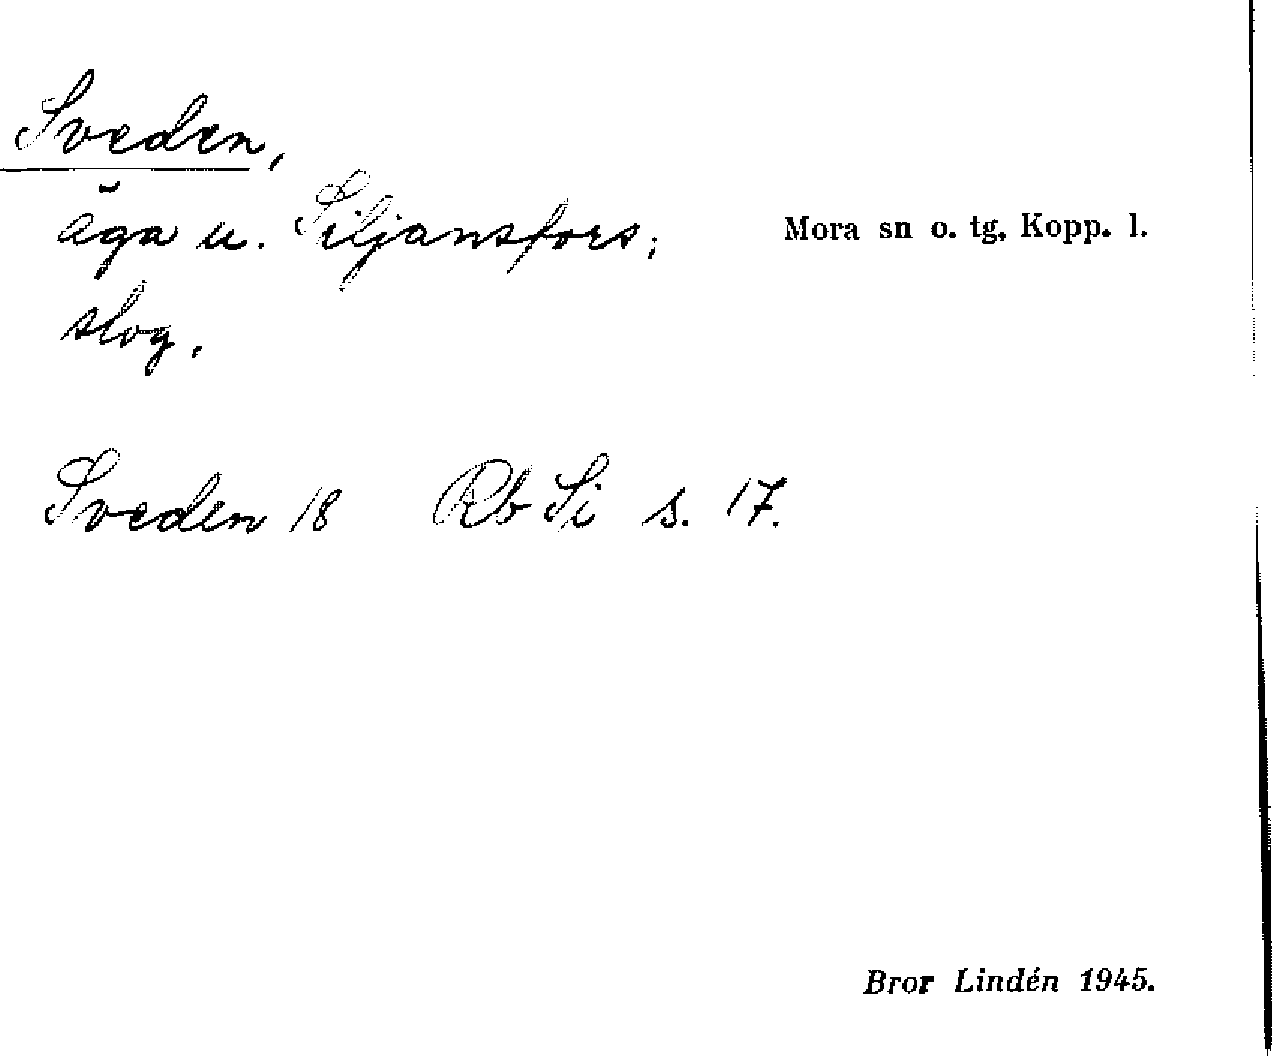 Sveden,
äga u. Siljansfors;
Mora sn o. tg, Kopp. l.
slog.
Sveden 18 Rb Si s. 17.
Bror Lindén 1945.